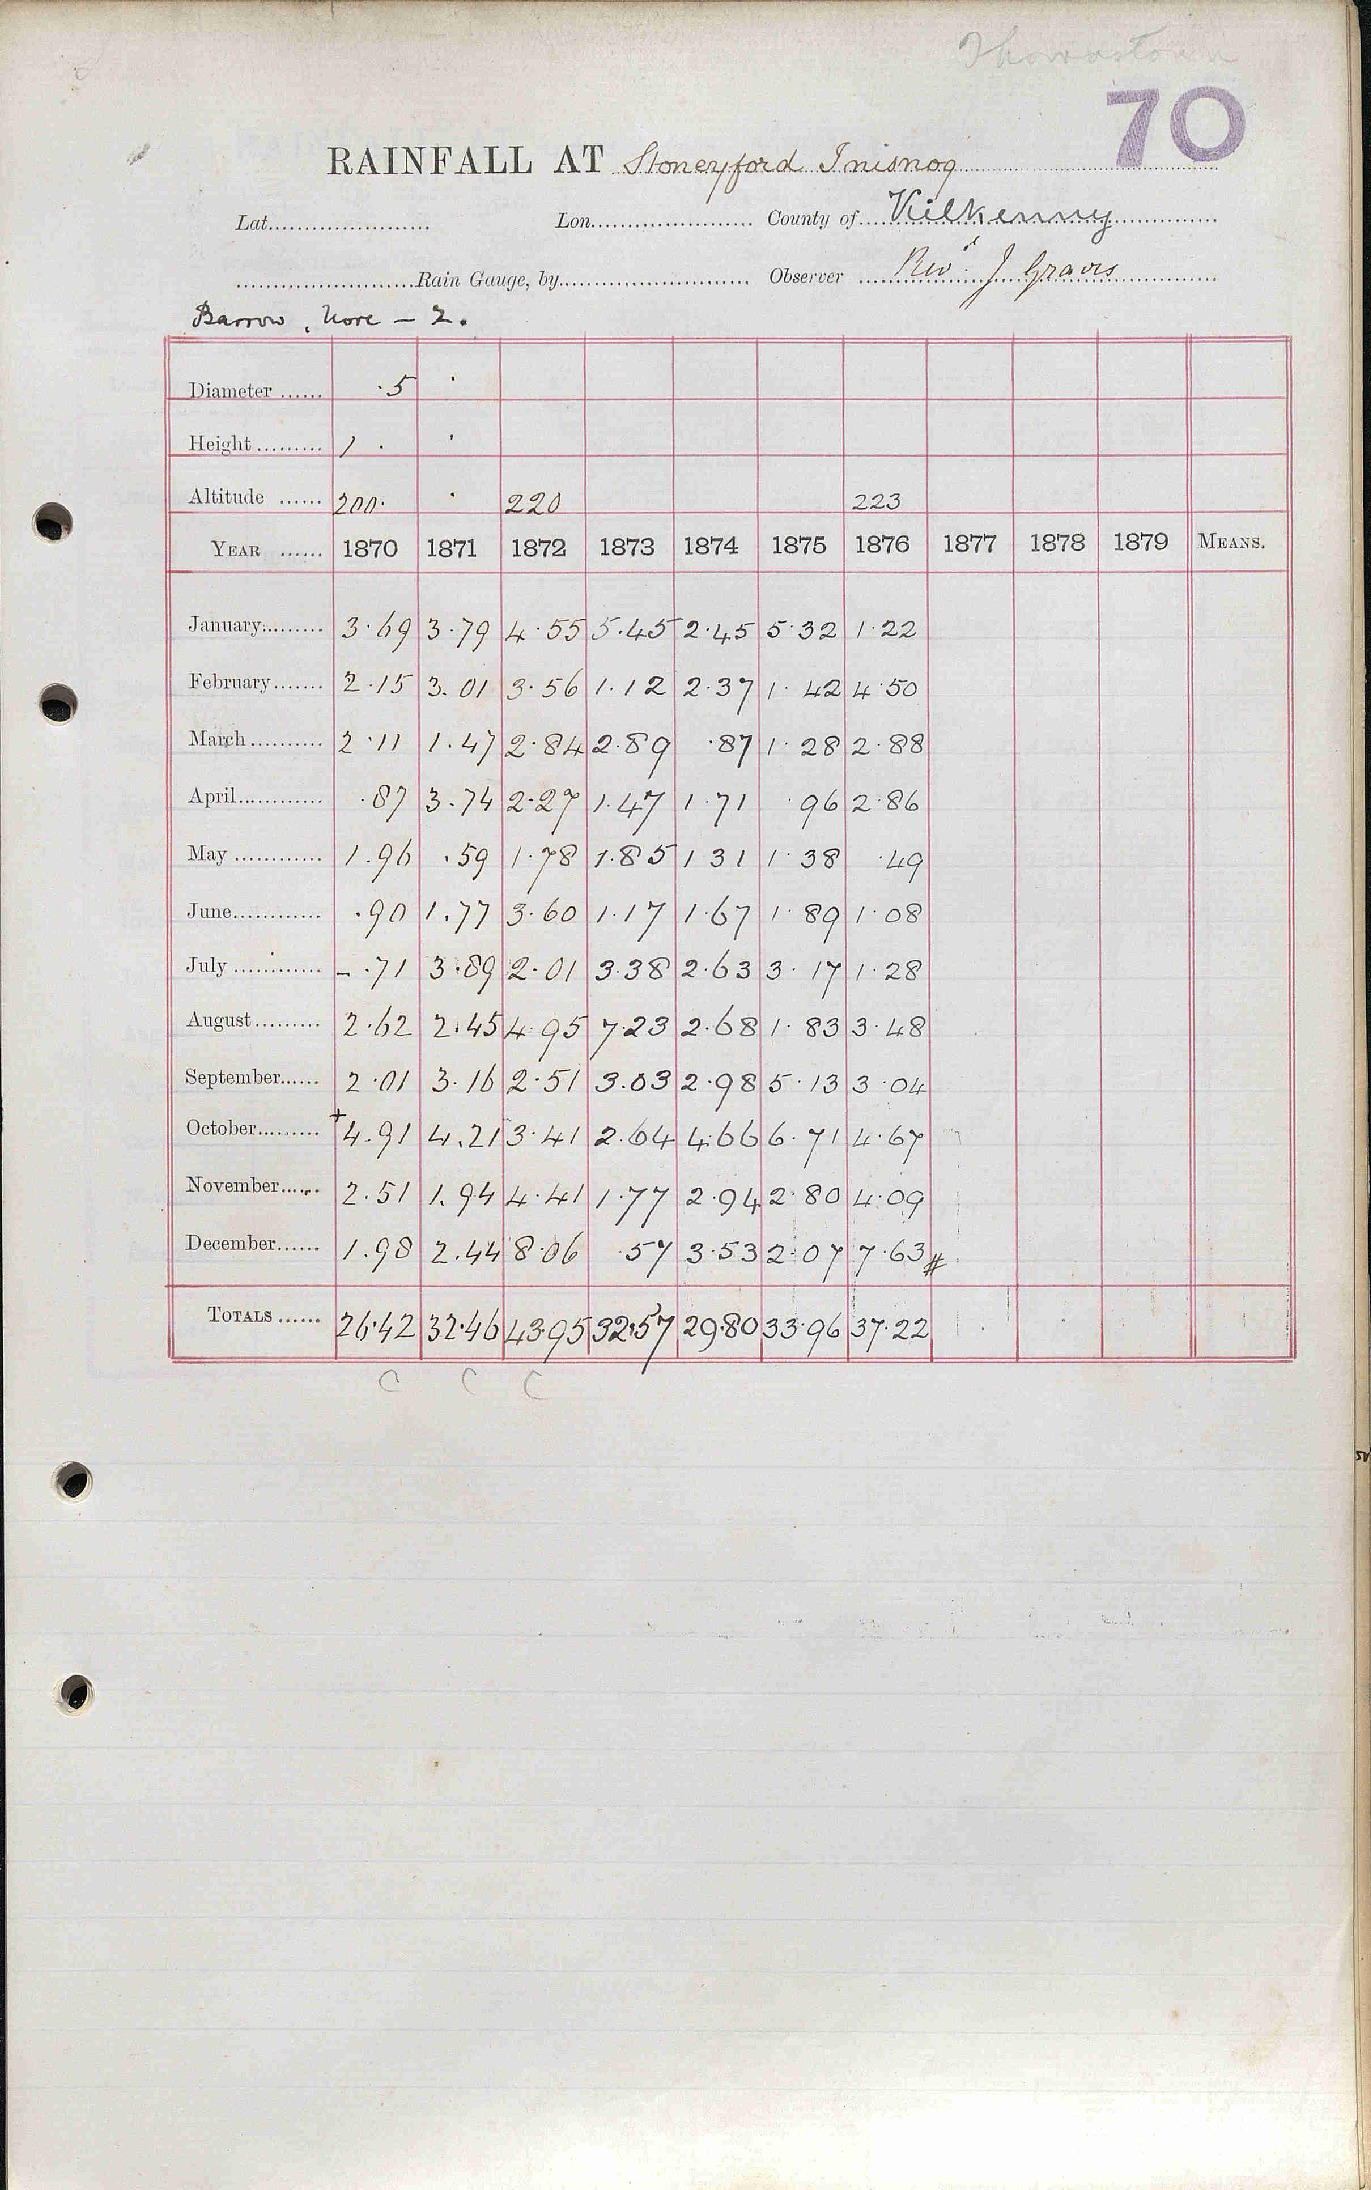 Thomastown
70
RAINFALL AT Stoneyford Inisnog
Lat. Lon. County of Kilkenny
Rain Gauge, by Observer Revd. J Graves
Barrow, Nore – 2.
Diameter ...... ·5 ·
Height ......... 1 · ·
Altitude ...... 200· · 220 223
YEAR ...... 1870 1871 1872 1873 1874 1875 1876 1877 1878 1879 MEANS.
January ......... 3·69 3·79 4·55 5·45 2·45 5·32 1·22
February ....... 2·15 3·01 3·56 1·12 2·37 1·42 4·50
March .......... 2·11 1·47 2·84 2·89 ·87 1·28 2·88
April ............ ·87 3·74 2·27 1·47 1·71 ·96 2·86
May ............ 1·96 ·59 1·78 1·85 1 31 1·38 ·49
June ............ ·90 1·77 3·60 1·17 1·67 1·89 1·08
July ............ – ·71 3·89 2·01 3·38 2·63 3·17 1·28
August ......... 2·62 2·45 4·95 7·23 2·68 1·83 3·48
September ...... 2·01 3·16 2·51 3·03 2·98 5·13 3·04
October ......... + 4·91 4·21 3·41 2·64 4·66 6·71 4·67
November ...... 2·51 1·94 4·41 1·77 2·94 2·80 4·09
December ...... 1·98 2·44 8·06 ·57 3·53 2·07 7·63 #
TOTALS ...... 26·42 32·46 43·95 32·57 29·80 33·96 37·22
C C C